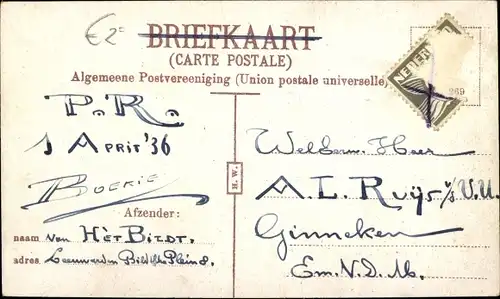 € 2=
BRIEFKAART
(CARTE POSTALE)
Algemeene Postvereeniging (Union postale universelle)
NEDER
269
P.R.
1 April '36
BOERIE
Afzender:
naam Van HET BILDT.
adres Leeuwarden Bildtsche Plein 8.
H. W.
Welderm. Heer
A L. Ruijs v/s V.U.
Ginneken
Em. N. D. M.